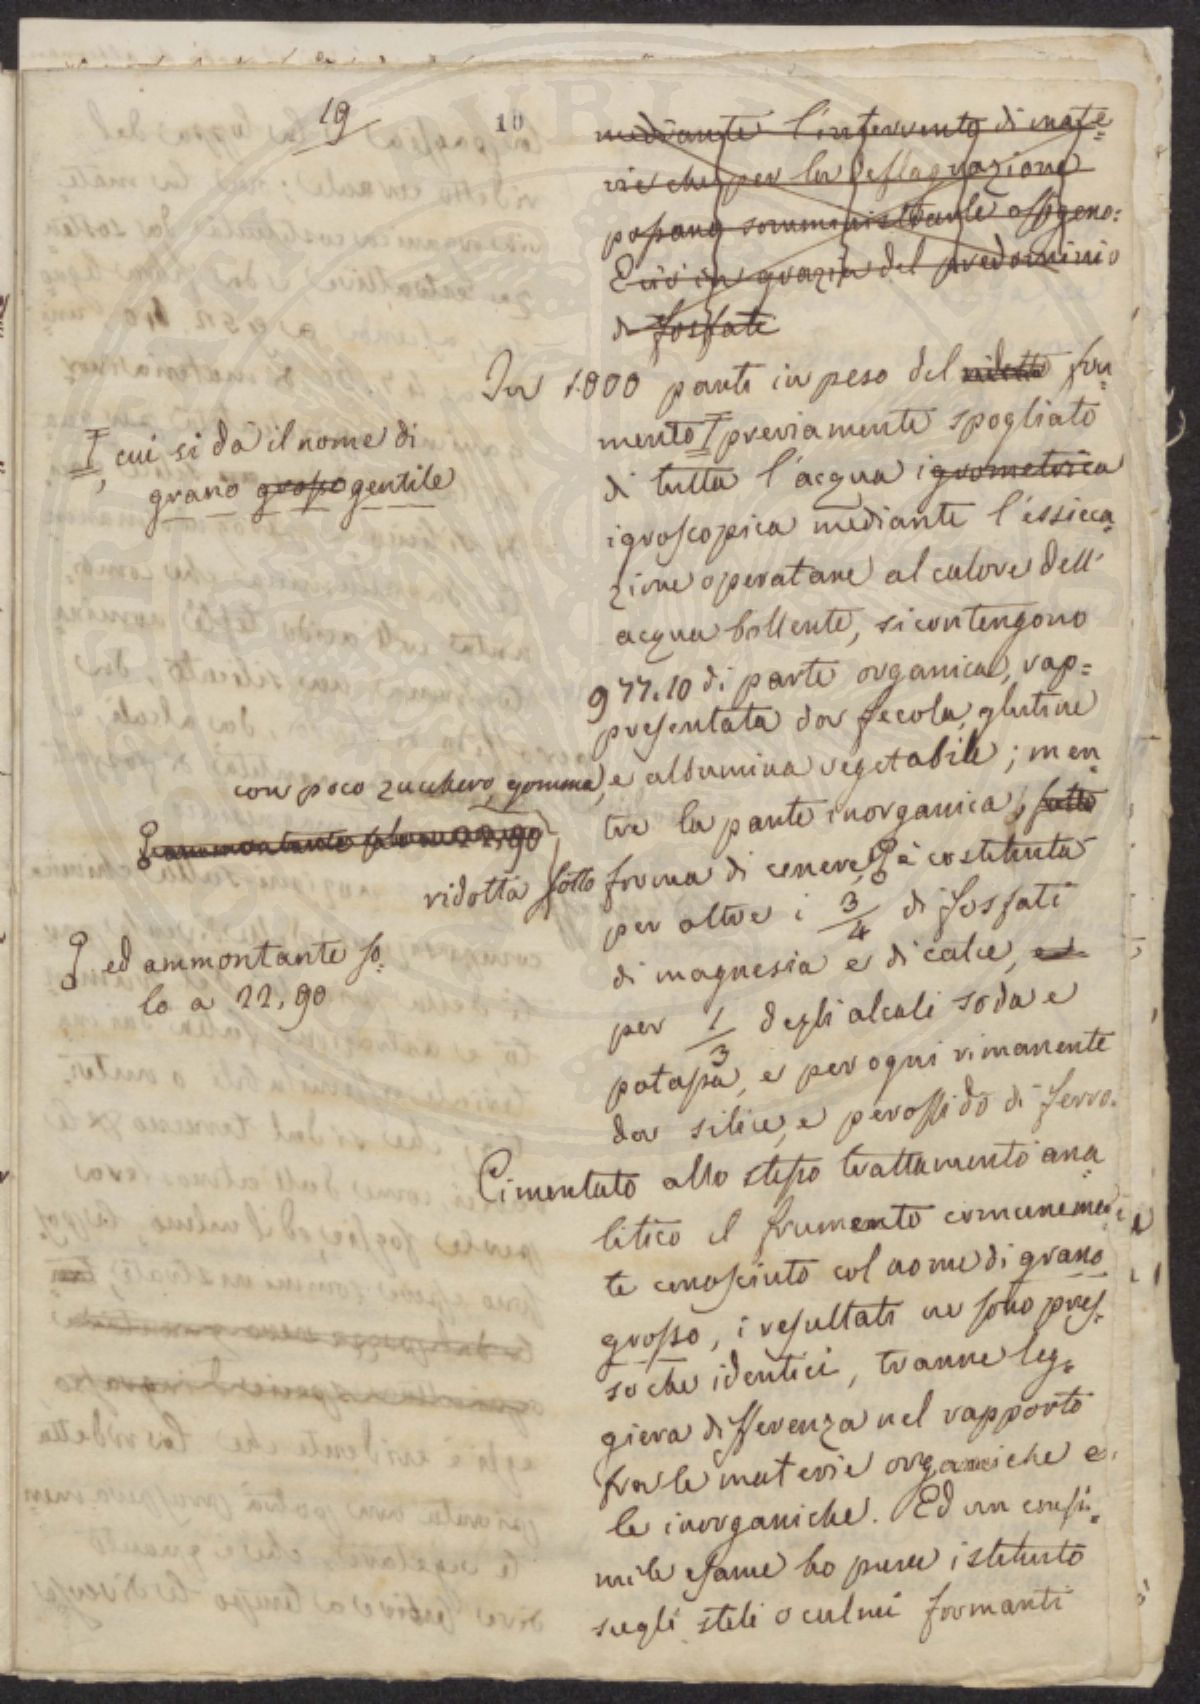 19
10
mediante l'intervento di mate=
rie che per la deflagrazione
possano somministrarle ossigeno:
E ciò in grazia del predominio
di fosfati
In 1.000 parti in peso del ridetto fru=
mento I previamente spogliato
di tutta l'acqua igrometrica
igroscopica mediante l'essicca=
zione operatane al calore dell'
acqua bollente, si contengono
977.10 di parte organica, rap=
presentata da fecola, glutine
con poco zucchero, gomma, e albumina vegetabile; men=
tre la parte inorganica, sotto
ridotta sotto forma di cenere, è costituita
per oltre i 3/4 di fosfati
di magnesia e di calce, ed
per 1/3 degli alcali soda e
potassa, e per ogni rimanente
da silice, e perossido di ferro.
Cimentato allo stesso trattamento ana=
litico il frumento comunemen=
te conosciuto col nome di grano
grosso, i resultati ne sono pres=
so che identici, tranne leg=
giera differenza nel rapporto
fra le materie organiche e
le inorganiche. Ed un consi=
mile esame ho pure istituito
sugli steli o culmi formanti
I, cui si dà il nome di
grano grosso gentile
ammontante solo a 22,90
ed ammontante so=
lo a 22,90